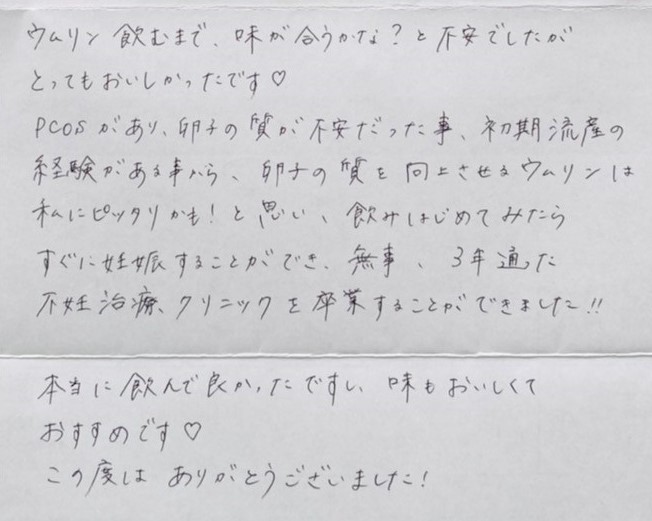 ウムリン 飲むまで、味が合うかな?と不安でしたが
とってもおいしかったです♡
PCOSがあり、卵子の質が不安だった事、初期流産の
経験がある事から、卵子の質を向上させるウムリンは
私にピッタリかも!と思い、飲みはじめてみたら
すぐに妊娠することができ、無事、3年通った
不妊治療、クリニックを卒業することができました!!
本当に飲んで良かったですし、味もおいしくて
おすすめです♡
この度は ありがとうございました!